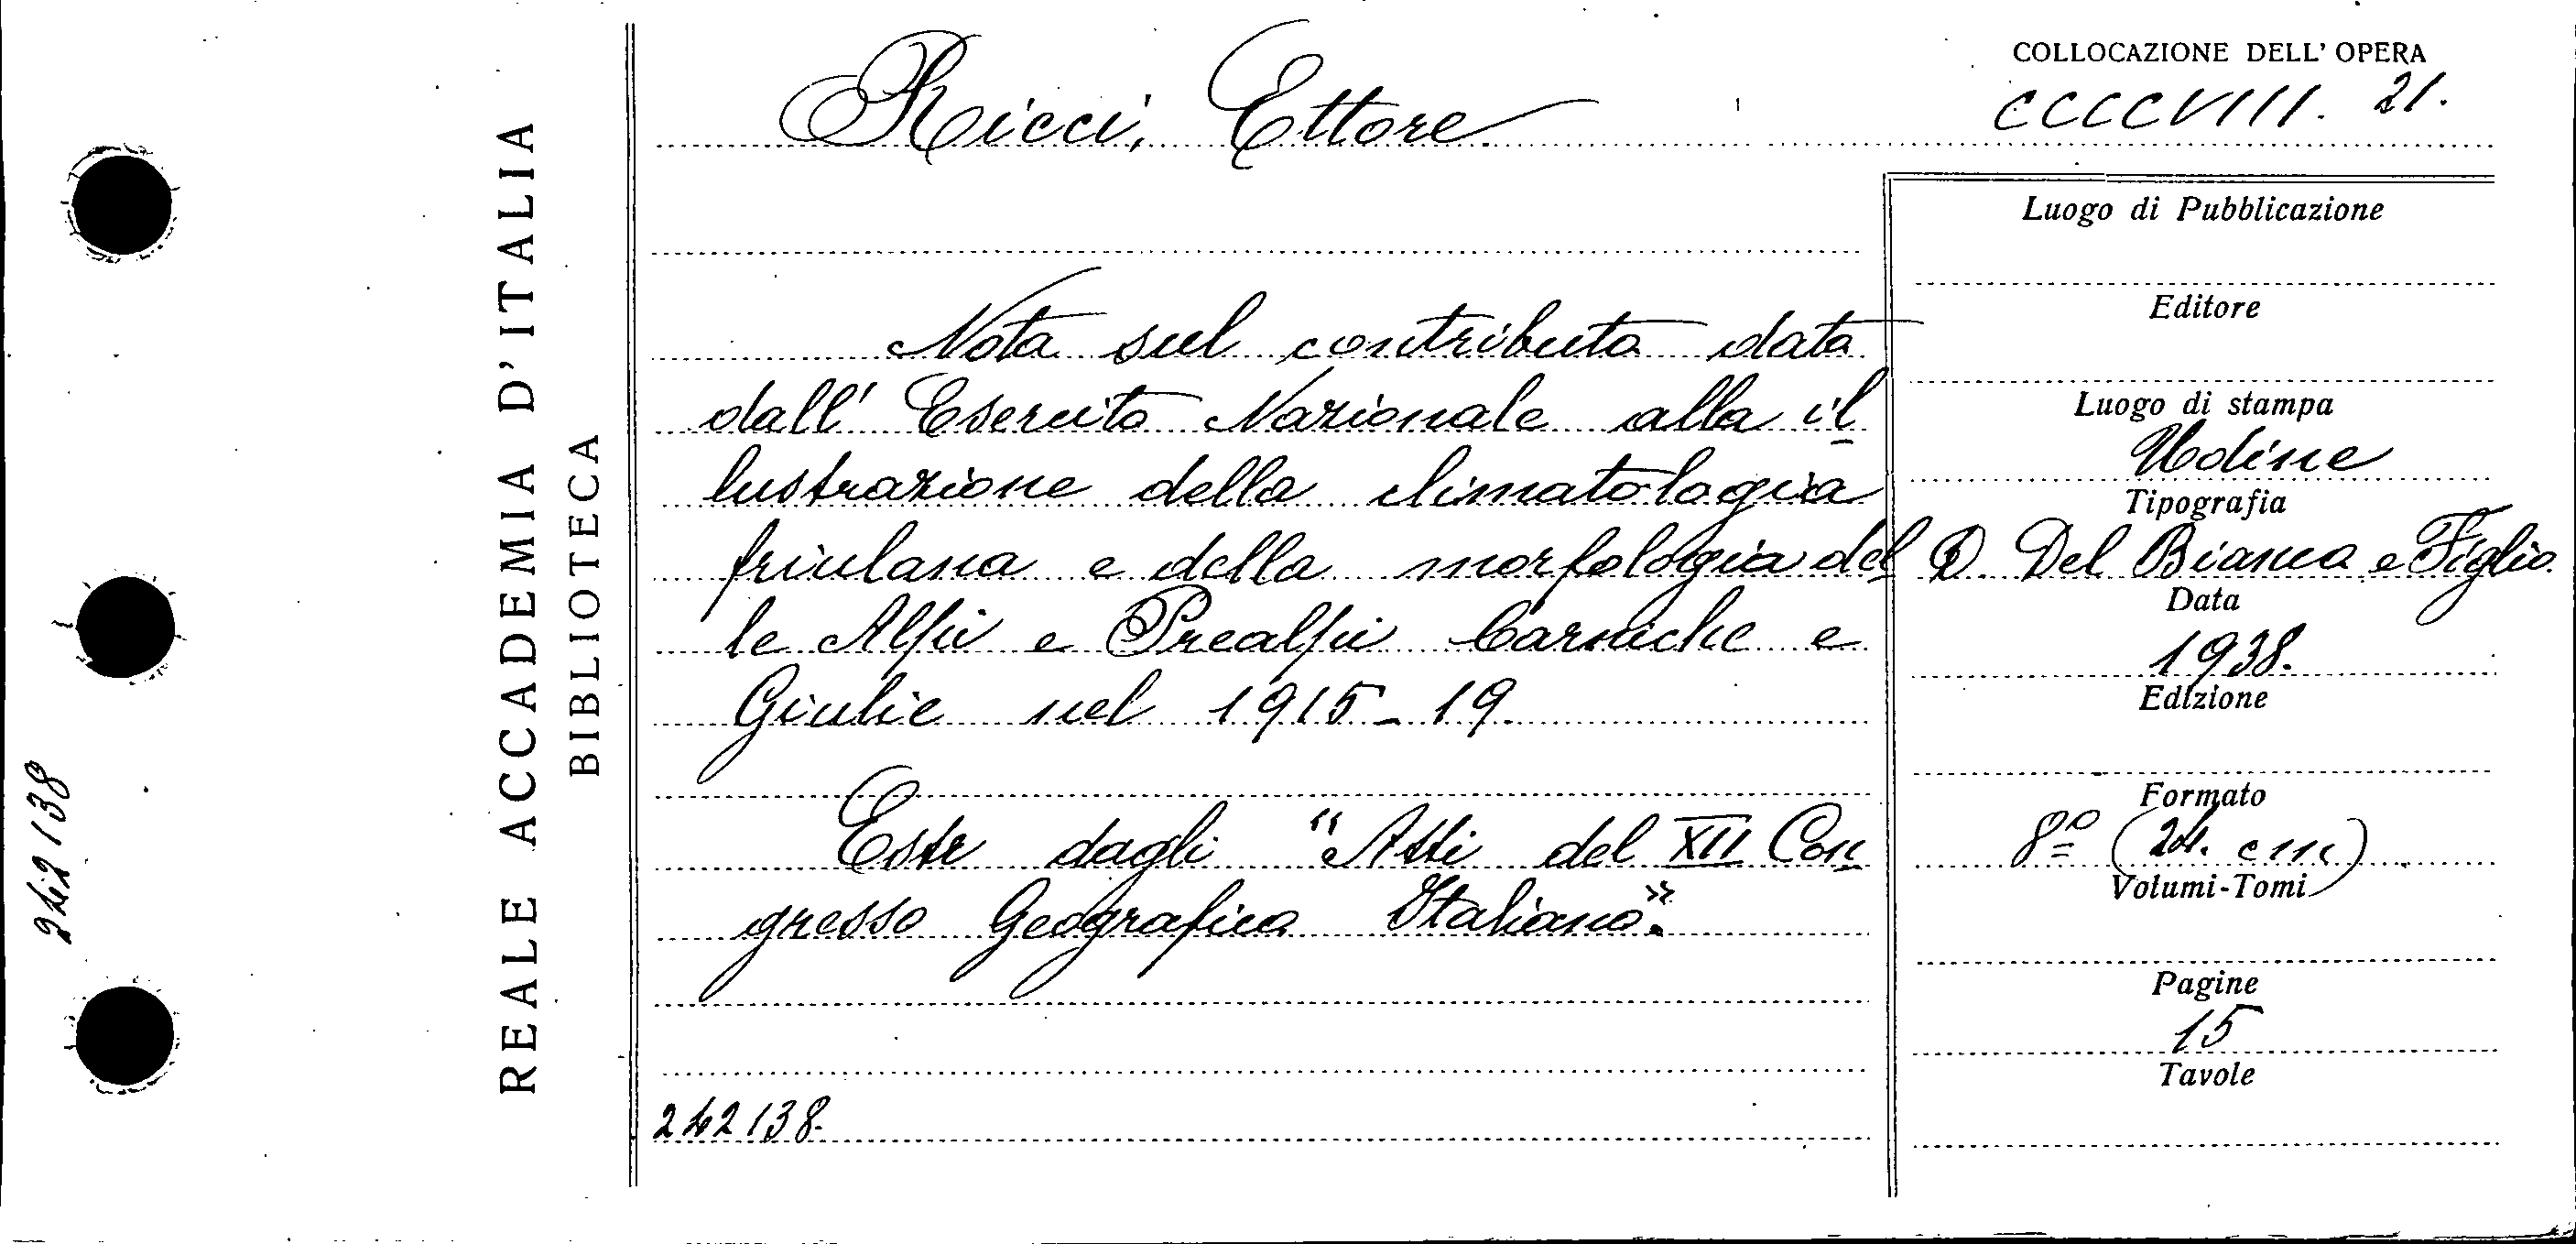 Ricci, Ettore
COLLOCAZIONE DELL' OPERA
CCCCVIII. 21.
Nota sul contributo dato
dall' Esercito Nazionale alla il
lustrazione della climatologia
friulana e della morfologia del
le Alpi e Prealpi Carniche e
Giulie nel 1915-19.
Estr dagli "Atti del XII Con
gresso Geografico Italiano".
242138.
Luogo di Pubblicazione
Editore
Luogo di stampa
Udine
Tipografia
D. Del Bianco e Figlio
Data
1938.
Edizione
Formato
8º (24. cm)
Volumi-Tomi
Pagine
15
Tavole
REALE ACCADEMIA D'ITALIA
BIBLIOTECA
242138